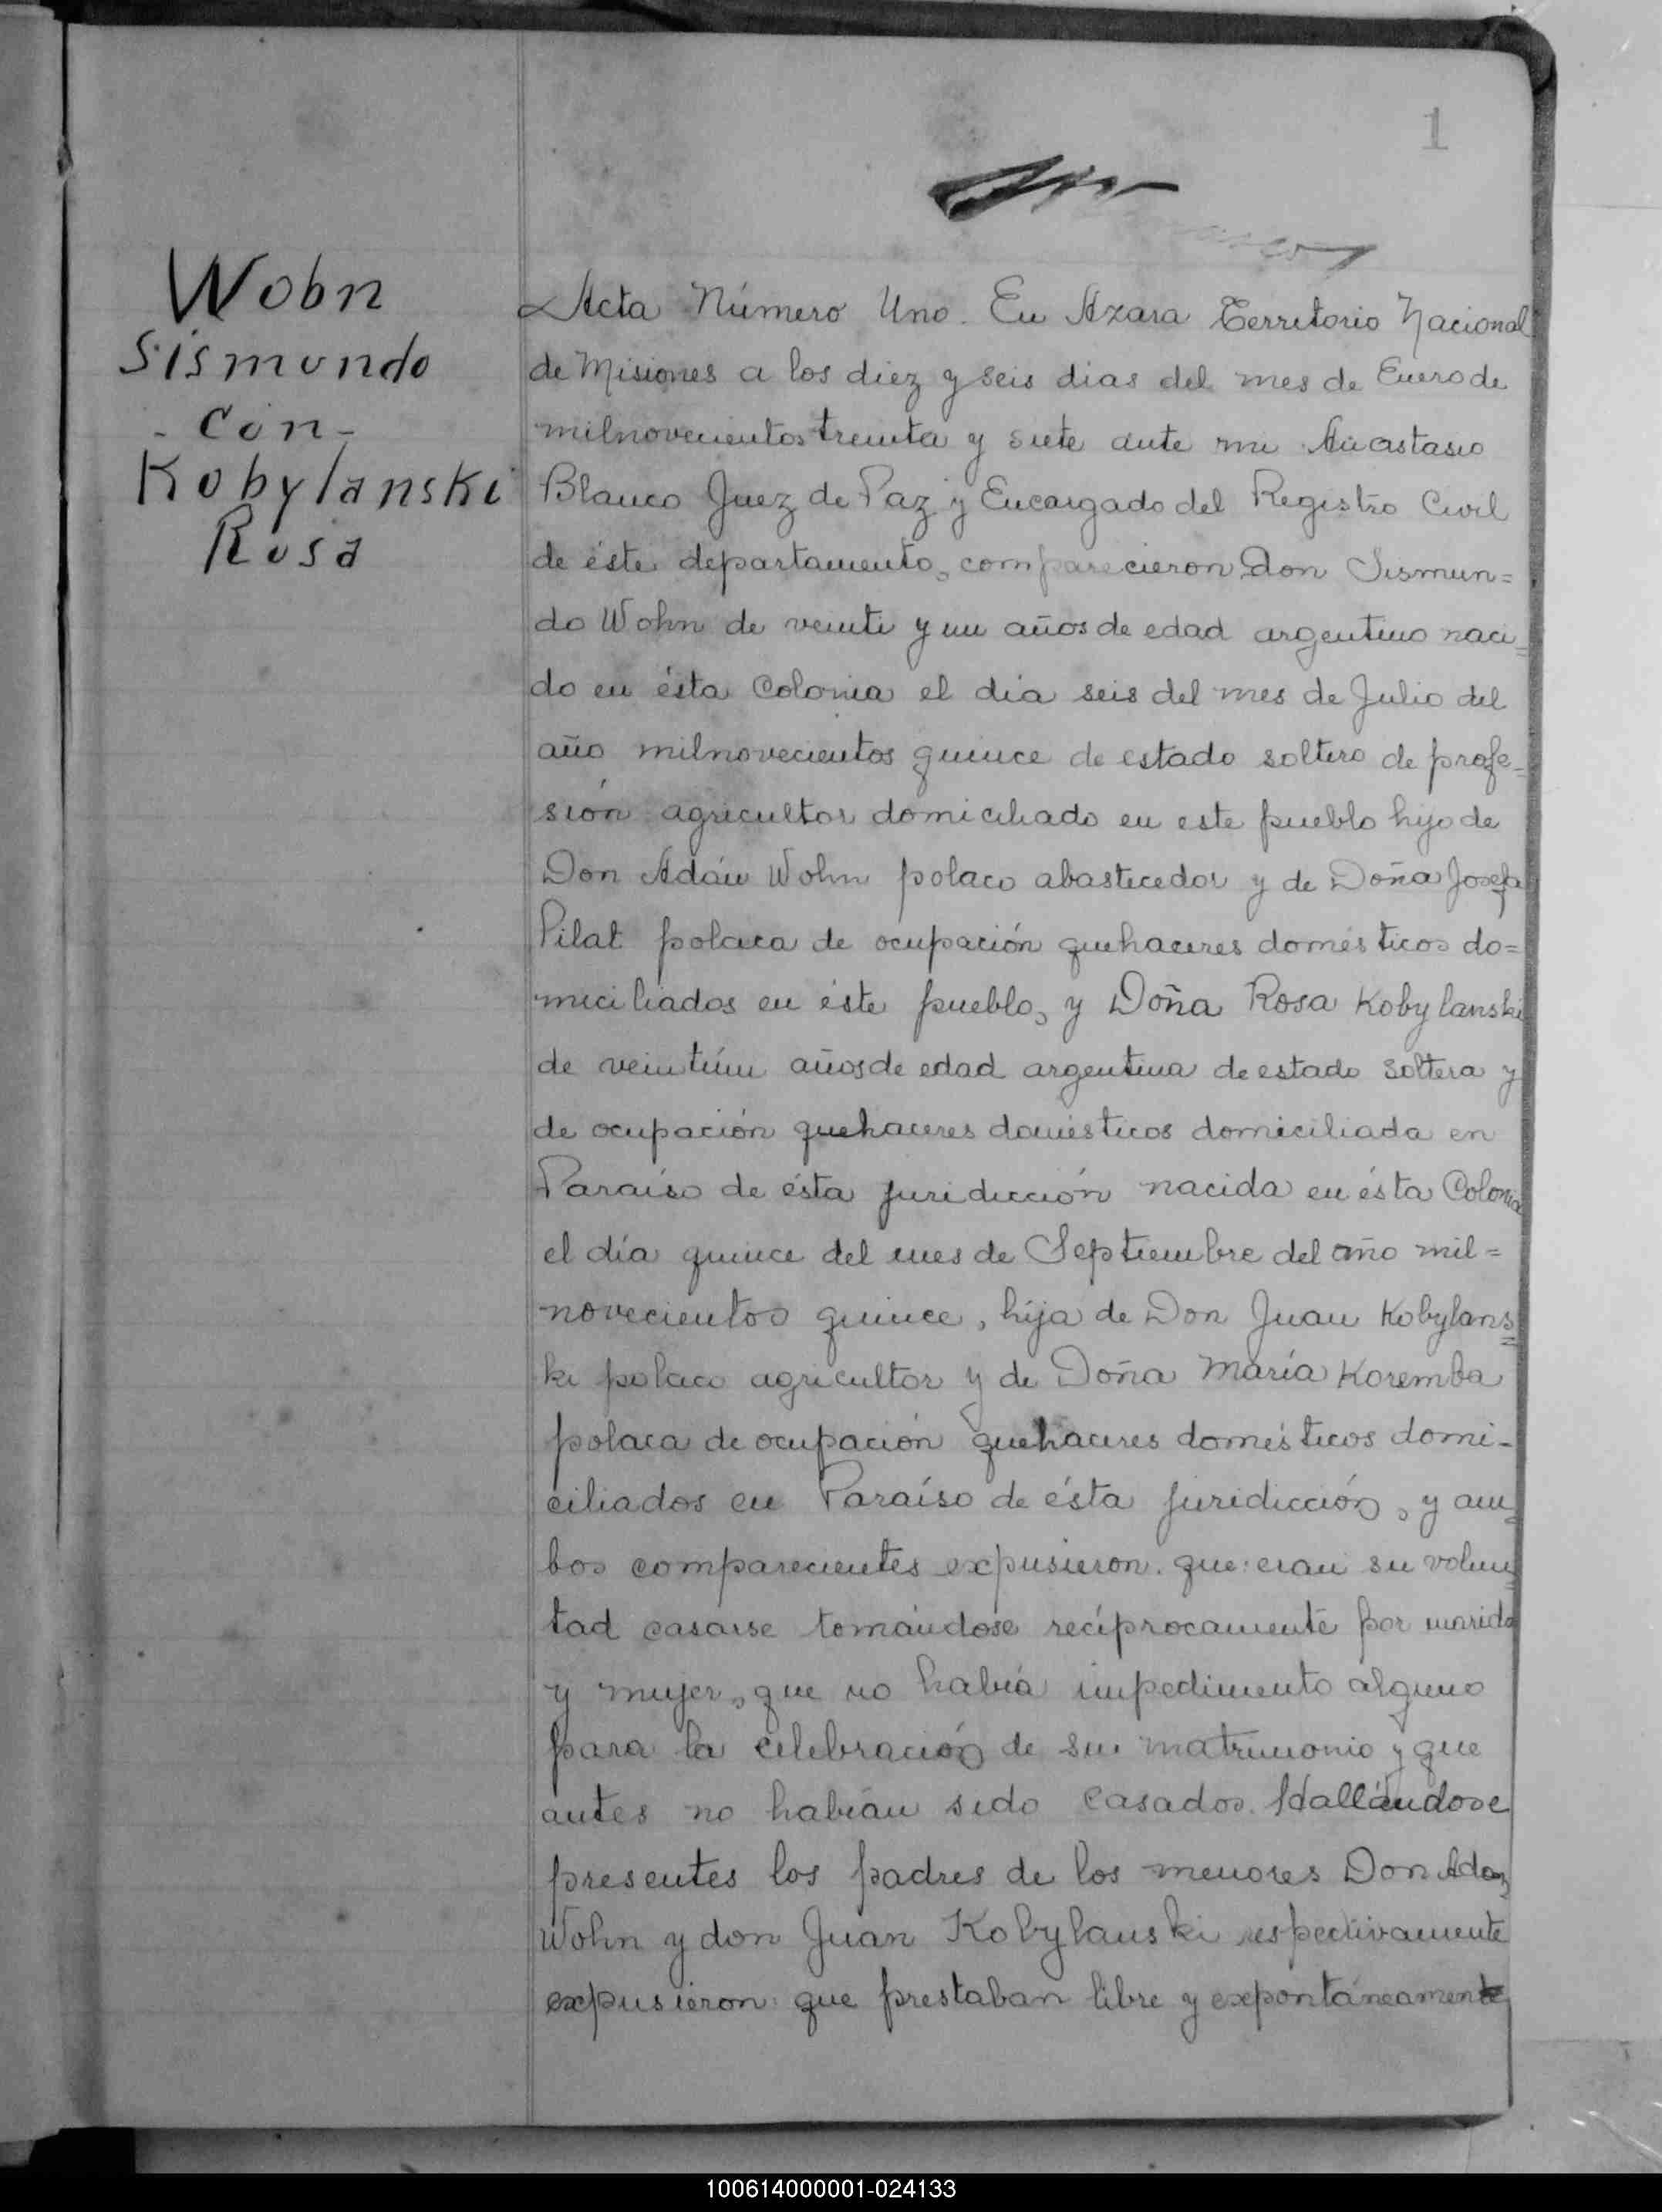 1
Wobn
Sismundo
- con -
Kobylanski
Rosa
Acta Número Uno. En Azara Territorio Nacional
de Misiones a los diez y seis dias del mes de Enero de
milnovecientos treinta y siete ante mi Anastasio
Blanco Juez de Paz y Encargado del Registro Civil
de éste departamento, comparecieron Don Sismun=
do Wohn de veinte y un años de edad argentino naci=
do en ésta Colonia el día seis del mes de Julio del
año milnovecientos quince de estado soltero de profe-
sión agricultor domiciliado en este pueblo hijo de
Don Adán Wohn polaco abastecedor y de Doña Josefa
Pilat polaca de ocupación quehaceres domésticos do=
miciliados en éste pueblo, y Doña Rosa Kobylanski
de veintiún años de edad argentina de estado soltera y
de ocupación quehaceres domésticos domiciliada en
Paraíso de ésta juridicción nacida en ésta Colonia
el día quince del mes de Septiembre del año mil=
novecientos quince, hija de Don Juan Kobylans=
ki polaco agricultor y de Doña María Koremba
polaca de ocupación quehaceres domésticos domi-
ciliados en Paraíso de ésta juridicción, y am=
bos comparecientes expusieron: que eran su volun=
tad casarse tomándose recíprocamente por marido
y mujer, que no había impedimento alguno
para la celebración de su matrimonio y que
antes no habían sido casados. Hallándose
presentes los padres de los menores Don Adan
Wohn y don Juan Kobylanski respectivamente
expusieron: que prestaban libre y expontáneamente
100614000001-024133